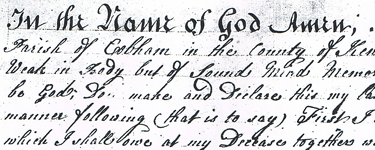 In the Name of God Amen;
Parish of Cobham in the County of Ken
Weak in Body but of Sound Mind Memor
be God, Do make and Declare this my La
manner following (that is to say) First I
which I shall owe at my Decease together w